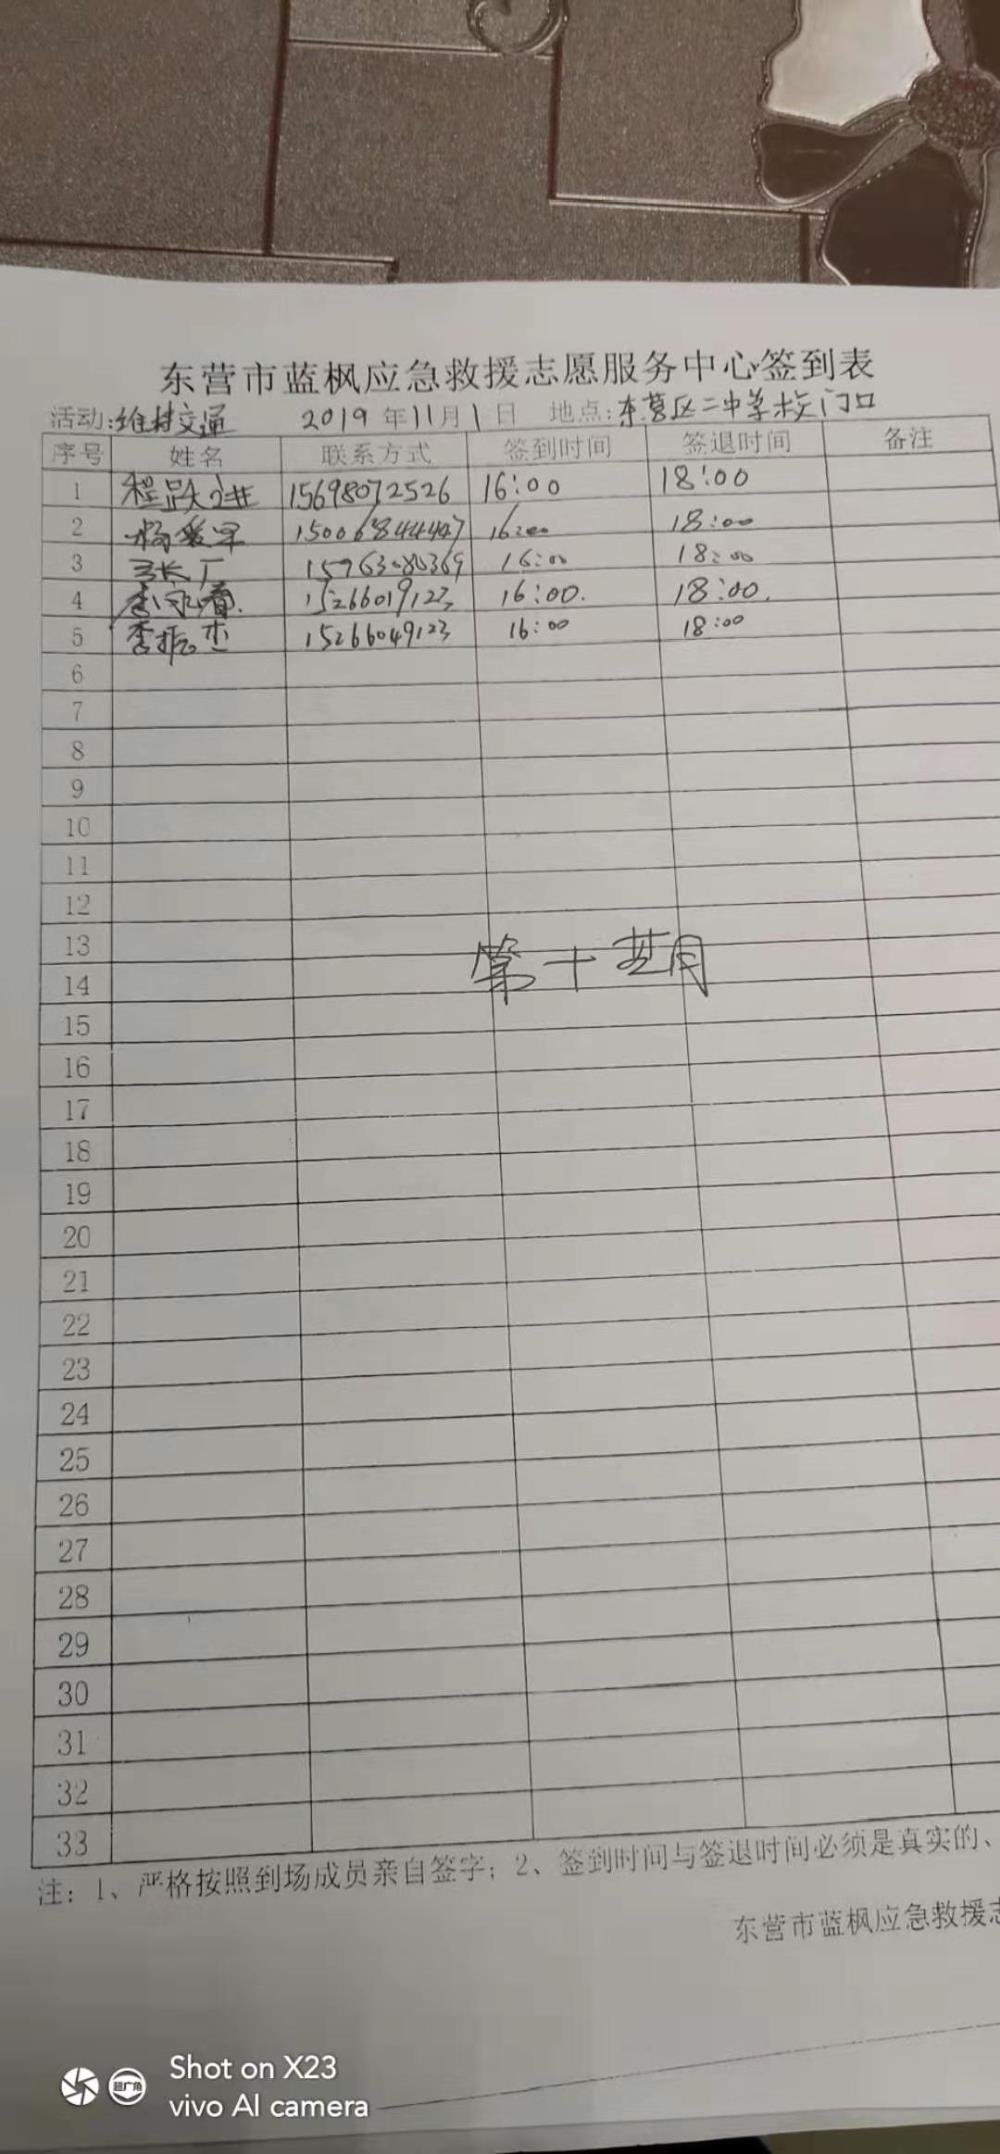 东营市蓝枫应急救援志愿服务中心签到表
活动:维持交通 2019年11月1日 地点:东营区二中学校门口
序号 姓名 联系方式 签到时间 签退时间 备注
1 程跃进 15698072526 16:00 18:00
2 杨爱军 15006844447 16:00 18:00
3 张厂 15963080369 16:00 18:00
4 15266019123 16:00. 18:00.
5 李振杰 15266049123 16:00 18:00
6
7
8
9
10
11
12
13
第十
14
15
16
17
18
19
20
21
22
23
24
25
26
27
28
29
30
31
32
33
注: 1、严格按照到场成员亲自签字; 2、签到时间与签退时间必须是真实的、
东营市蓝枫应急救援志
超广角
Shot on X23
vivo AI camera